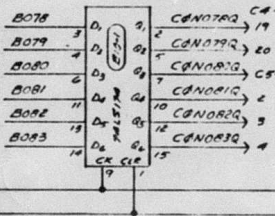 C4
B078 3 D1 Q1 2 CON078Q 19
B079 4 D2 Q2 5 CON079Q 20
B080 6 D3 Q3 7 CON080Q C5
B081 11 D4 Q4 10 CON081Q 2
B082 13 D5 Q5 12 CON082Q 3
B083 14 D6 Q6 15 CON083Q 4
74LS174
CK CLR
9 1